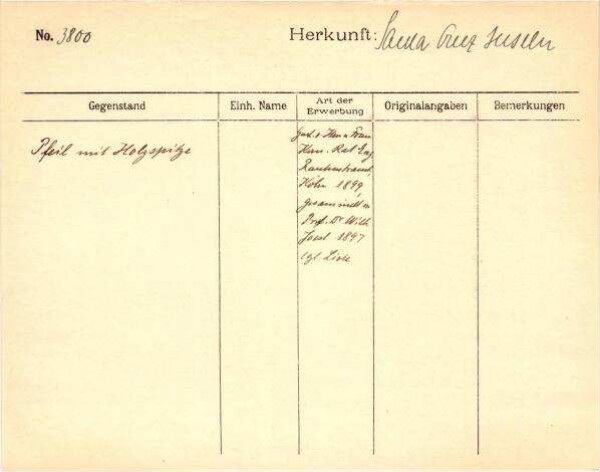 No. 3800
Herkunft: Santa Cruz Inseln
Gegenstand
Einh. Name
Art der Erwerbung
Originalangaben
Bemerkungen
Pfeil mit Holzspitze
Frau
Rat Eug.
Rautenstrauch,
Köln 1899,
gesammelt v.
Prof. Dr Wilh.
Joest 1897
cgl. Liste